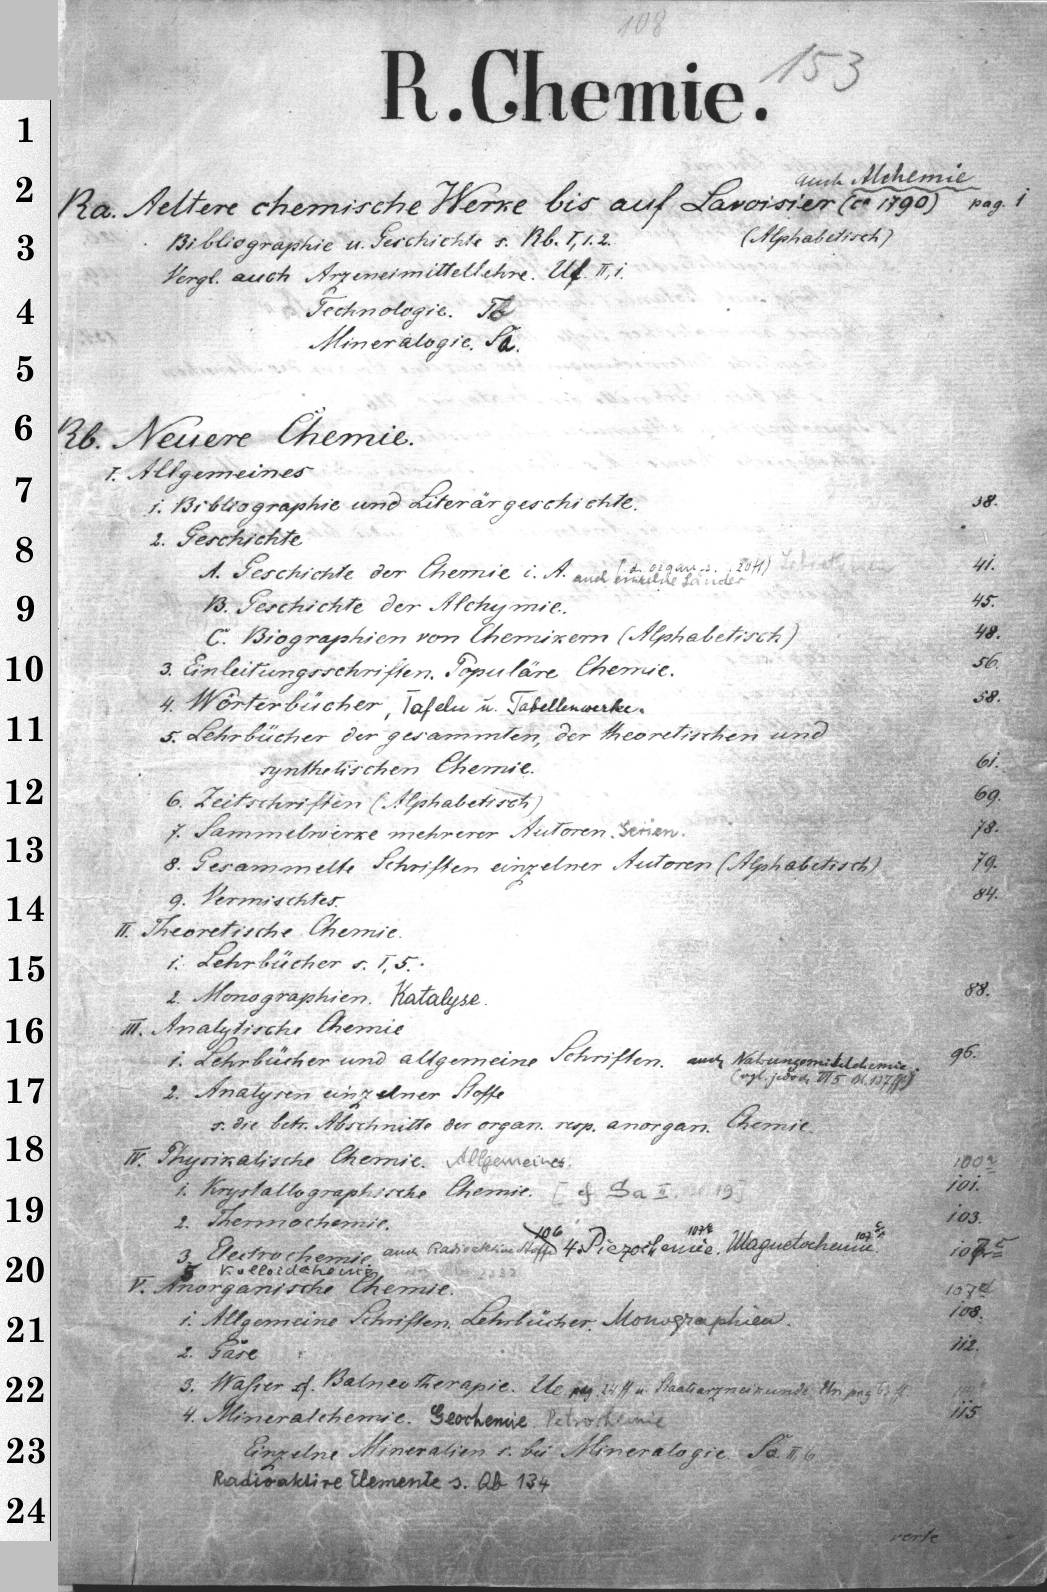 108
R. Chemie. 153
auch Alchemie
Ra. Aeltere chemische Werke bis auf Lavoisier (ca 1790) pag. 1
Bibliographie u. Geschichte s. Rb. I, 1. 2. (Alphabetisch)
Vergl. auch Arzneimittellehre. Uf. II, 1.
Technologie. Tb
Mineralogie. Sa.
Rb. Neuere Chemie.
I. Allgemeines
1. Bibliographie und Literärgeschichte. 38.
2. Geschichte
A. Geschichte der Chemie i. A. auch einzelne Länder 41.
B. Geschichte der Alchymie. 45.
C. Biographien von Chemikern (Alphabetisch) 48.
3. Einleitungsschriften. Populäre Chemie. 56.
4. Wörterbücher, Tafeln u. Tabellenwerke. 58.
5. Lehrbücher der gesammten, der theoretischen und
synthetischen Chemie. 61.
6. Zeitschriften (Alphabetisch) 69.
7. Sammelwerke mehrerer Autoren. Serien. 78.
8. Gesammelte Schriften einzelner Autoren (Alphabetisch) 79.
9. Vermischtes. 84.
II. Theoretische Chemie.
1. Lehrbücher s. I, 5.
2. Monographien. Katalyse. 88.
III. Analytische Chemie
1. Lehrbücher und allgemeine Schriften. auch Nahrungsmittelchemie. 96.
(vgl. jedoch VII 5 Bl. 137 ff)
2. Analysen einzelner Stoffe
s. die betr. Abschnitte der organ. resp. anorgan. Chemie.
IV. Physikalische Chemie. Allgemeines. 100
1. Krystallographische Chemie. [cf Sa II 19] 101.
2. Thermochemie. 103.
3. Electrochemie auch Radioaktive Stoffe 106 4. Piezochemie. Magnetochemie. 107
5 Kolloidchemie
V. Anorganische Chemie. 107
1. Allgemeine Schriften. Lehrbücher. Monographien. 108.
2. Gase 112.
3. Wasser cf. Balneotherapie. Ue pag. 24 ff u. Staatsarzneikunde pag
4. Mineralchemie. Geochemie Petrochemie 115
Einzelne Mineralien s. bei Mineralogie. Sa. II, 6
Radioaktive Elemente s. Qb 134
verte
1
2
3
4
5
6
7
8
9
10
11
12
13
14
15
16
17
18
19
20
21
22
23
24